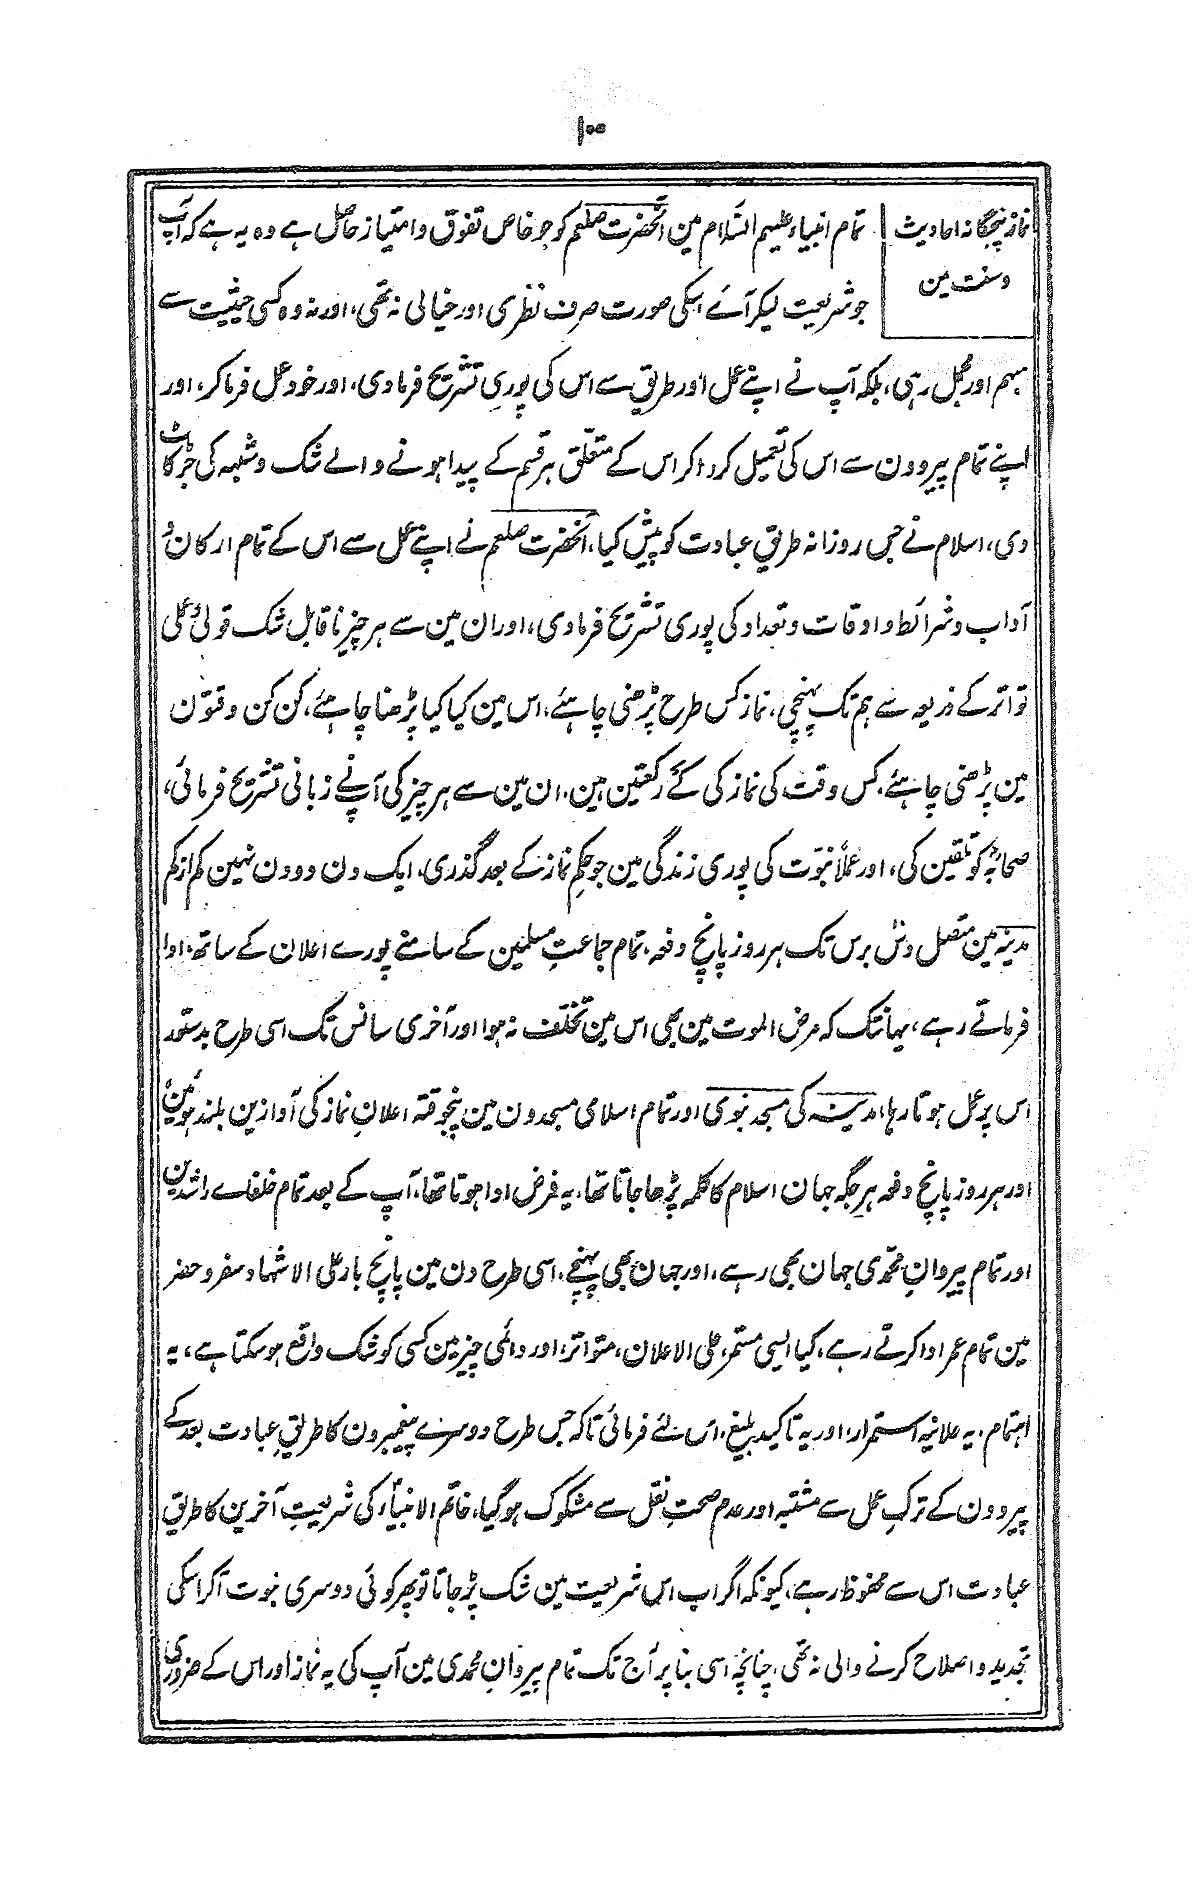 ۱۰۰
نماز پنجگانہ احادیث
و سنت مین
تمام انبیاء علیہم السّلام مین آنحضرت صلعم کو جو خاص تفوق و امتیاز حاصل ہے وہ یہ ہے کہ آپ
جو شریعت لیکر آئے اسکی صورت صرف نظری اور خیالی نہ تھی، اور نہ وہ کسی حیثیت سے
مبہم اور مجمل رہی، بلکہ آپ نے اپنے عمل اور طریق سے اس کی پوری تشریح فرما دی، اور خود عمل فرما کر، اور
اپنے تمام پیروون سے اس کی تعمیل کروا کر اس کے متعلق ہر قسم کے پیدا ہونے والے شک و شبہہ کی جڑ کاٹ
دی، اسلام نے جس روزانہ طریقِ عبادت کو پیش کیا، آنحضرت صلعم نے اپنے عمل سے اس کے تمام ارکان و
آداب و شرائط و اوقات و تعداد کی پوری تشریح فرما دی، اور ان مین سے ہر چیز ناقابلِ شک قولی و عملی
تواتر کے ذریعہ سے ہم تک پہنچی، نماز کس طرح پڑھنی چاہئے، اس مین کیا کیا پڑھنا چاہئے، کن کن وقتوں
مین پڑھنی چاہئے، کس وقت کی نماز کی کے رکعتین ہین، ان مین سے ہر چیز کی آپنے زبانی تشریح فرمائی،
صحابہؓ کو تلقین کی، اور عملاً نبوّت کی پوری زندگی مین جو حکمِ نماز کے بعد گذری، ایک دن دو دن نہین کم از کم
مدینہ مین متصل دس برس تک ہر روز پانچ دفعہ، تمام جماعتِ مسلمین کے سامنے پورے اعلان کے ساتھ، ادا
فرماتے رہے، یہانتک کہ مرض الموت مین بھی اس مین تخلّف نہ ہوا اور آخری سانس تک اسی طرح بدستور
اس پر عمل ہوتا رہا، مدینہ کی مسجد نبوی اور تمام اسلامی مسجدون مین پنجوقتہ اعلانِ نماز کی آوازین بلند ہوئین
اور ہر روز پانچ دفعہ ہر جگہ جہان اسلام کا کلمہ پڑھا جاتا تھا، یہ فرض ادا ہوتا تھا، آپ کے بعد تمام خلفاے راشدین
اور تمام پیروانِ محمدی جہان بھی رہے، اور جہان بھی پہنچے، اسی طرح دن مین پانچ بار علی الاشہاد سفر و حضر
مین تمام عمر ادا کرتے رہے، کیا ایسی مستمر، علی الاعلان، متواتر، اور دائمی چیز مین کسی کو شک واقع ہو سکتا ہے، یہ
اہتمام، یہ علانیہ استمرار، اور یہ تاکیدِ بلیغ، اس لئے فرمائی تاکہ جس طرح دوسرے پیغمبرون کا طریقِ عبادت بعد کے
پیروون کے ترکِ عمل سے مشتبہ اور عدم صحتِ نقل سے مشکوک ہو گیا، خاتم الانبیاؑء کی شریعتِ آخرین کا طریق
عبادت اس سے محفوظ رہے، کیونکہ اگر اب اس شریعت مین شک پڑ جاتا تو پھر کوئی دوسری نبوت آکر اسکی
تجدید و اصلاح کرنے والی نہ تھی، چنانچہ اسی بنا پر آج تک تمام پیروانِ محمدی مین آپ کی یہ نماز اور اس کے ضروری